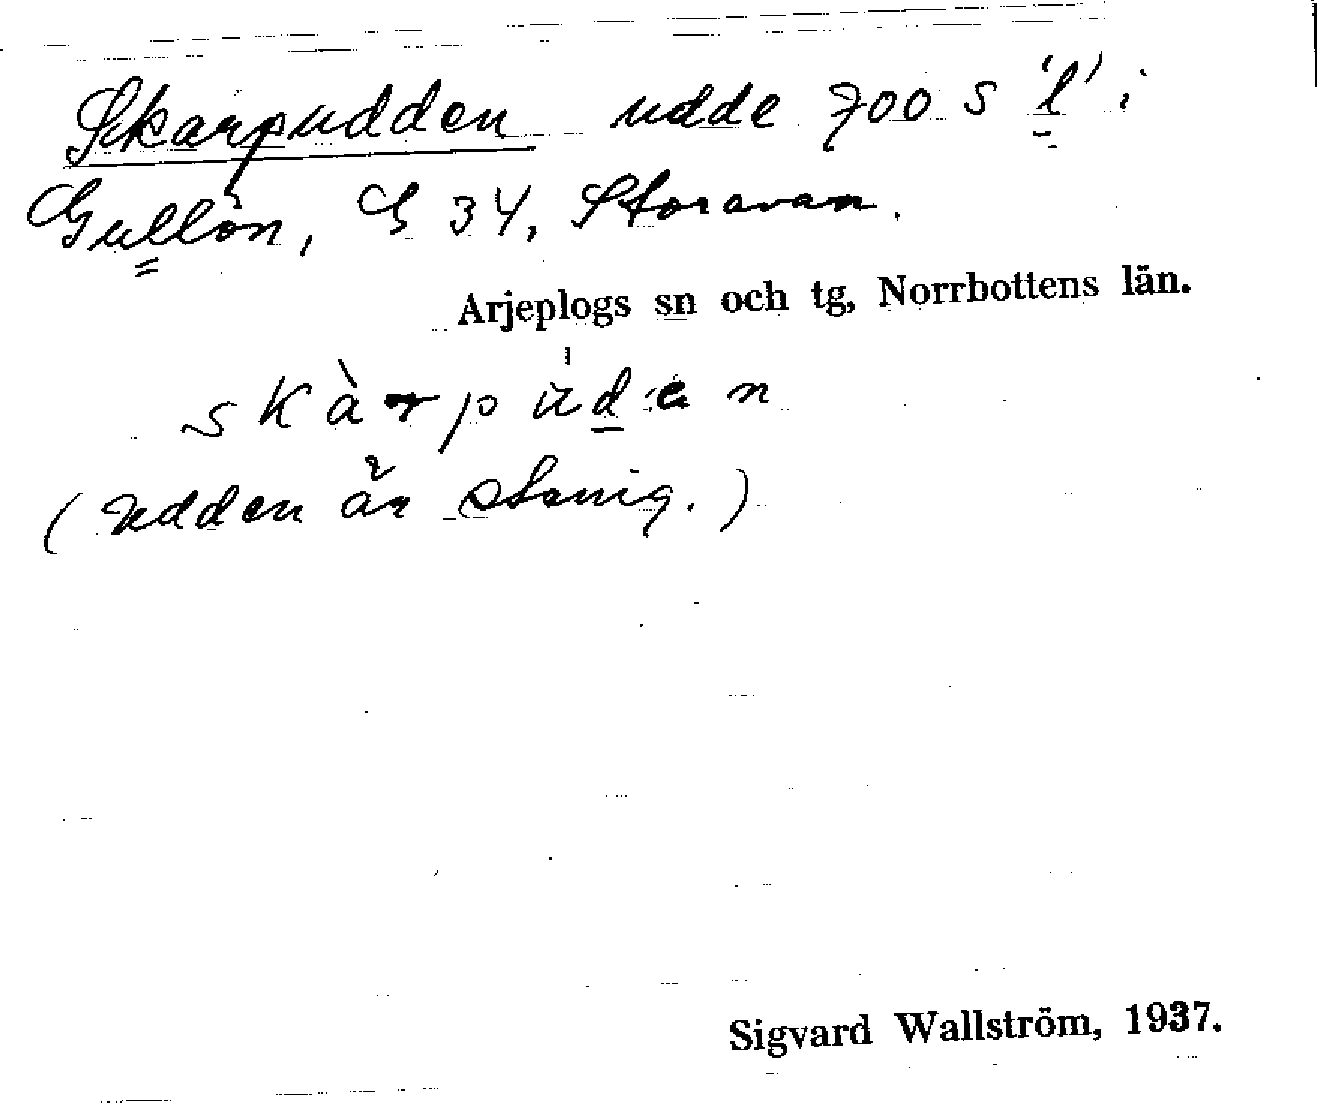 Skarpudden udde 700 S 'l' i
Gullön, G 34, Storavan.
Arjeplogs sn och tg, Norrbottens län.
skàrpùden
(Udden är stenig.)
Sigvard Wallström, 1937.